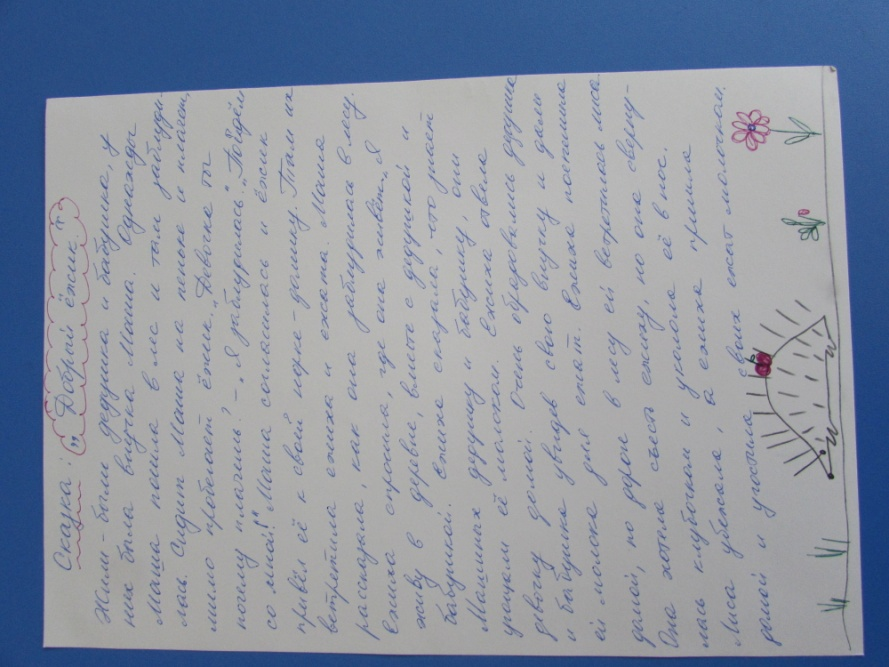 Сказка: „Добрый ёжик".
Жили-были дедушка и бабушка, у
них была внучка Маша. Однажды
Маша пошла в лес и там заблуди-
лась. Сидит Маша на пеньке и плачет,
мимо пробегает ёжик. „Девочка ты
почему плачешь? – „Я заблудилась". „Пойдём
со мной!" Маша согласилась и ёжик
привёл её к свой норке-домику. Там их
встретила ежиха и ежата. Маша
рассказала, как она заблудилась в лесу.
Ежиха спросила, где она живёт. „Я
живу в деревне, вместе с дедушкой и
бабушкой. Ежиха сказала, что знает
Машиных дедушку и бабушку, они
угощали её молоком. Ежиха отвела
девочку домой. Очень обрадовались дедушка
и бабушка увидев свою внучку и дали
ей молока для ежат. Ежиха поспешила
домой, по дороге в лесу ей встретилась лиса.
Она хотела съесть ежиху, но она сверну-
лась клубочком и уколола её в нос.
Лиса убежала, а ежиха пришла
домой и угостила своих ежат молочком.